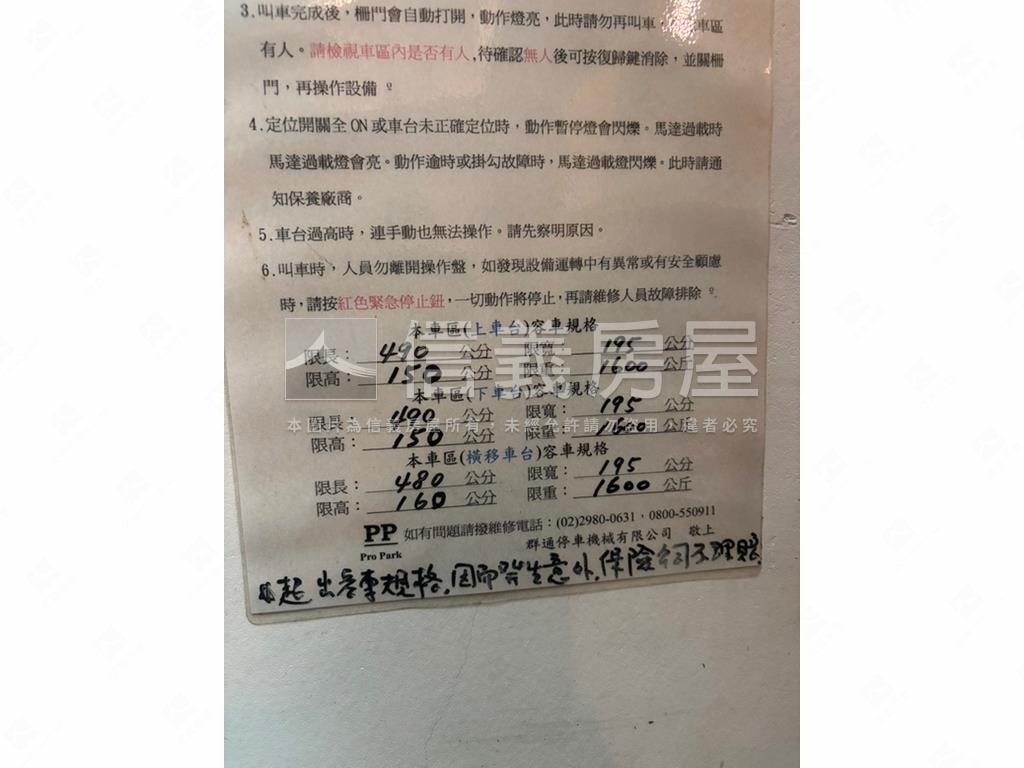 3.叫車完成後，柵門會自動打開，動作燈亮，此時請勿再叫車，車區
有人。請檢視車區內是否有人,待確認無人後可按復歸鍵消除，並關柵
門，再操作設備。
4.定位開關全ON或車台未正確定位時，動作暫停燈會閃爍。馬達過載時
馬達過載燈會亮。動作逾時或掛勾故障時，馬達過載燈閃爍。此時請通
知保養廠商。
5.車台過高時，連手動也無法操作。請先察明原因。
6.叫車時，人員勿離開操作盤，如發現設備運轉中有異常或有安全顧慮
時，請按紅色緊急停止鈕，一切動作將停止，再請維修人員故障排除。
本車區(上車台)容車規格
限長：490公分 限寬：195公分
限高：150公分 限重：1600公斤
信義房屋
本車區(下車台)容車規格
限長：公分 限寬：195公分
本圖片為信義房屋所有，未經允許請勿使用，違者必究
限高：150公分 限重：1600公斤
本車區(橫移車台)容車規格
限長：480公分 限寬：195公分
限高：160公分 限重：1600公斤
PP Pro Park 如有問題請撥維修電話：(02)2980-0631，0800-550911
群通停車機械有限公司 敬上
出容車規格.因而發生意外.保險公司不理賠.